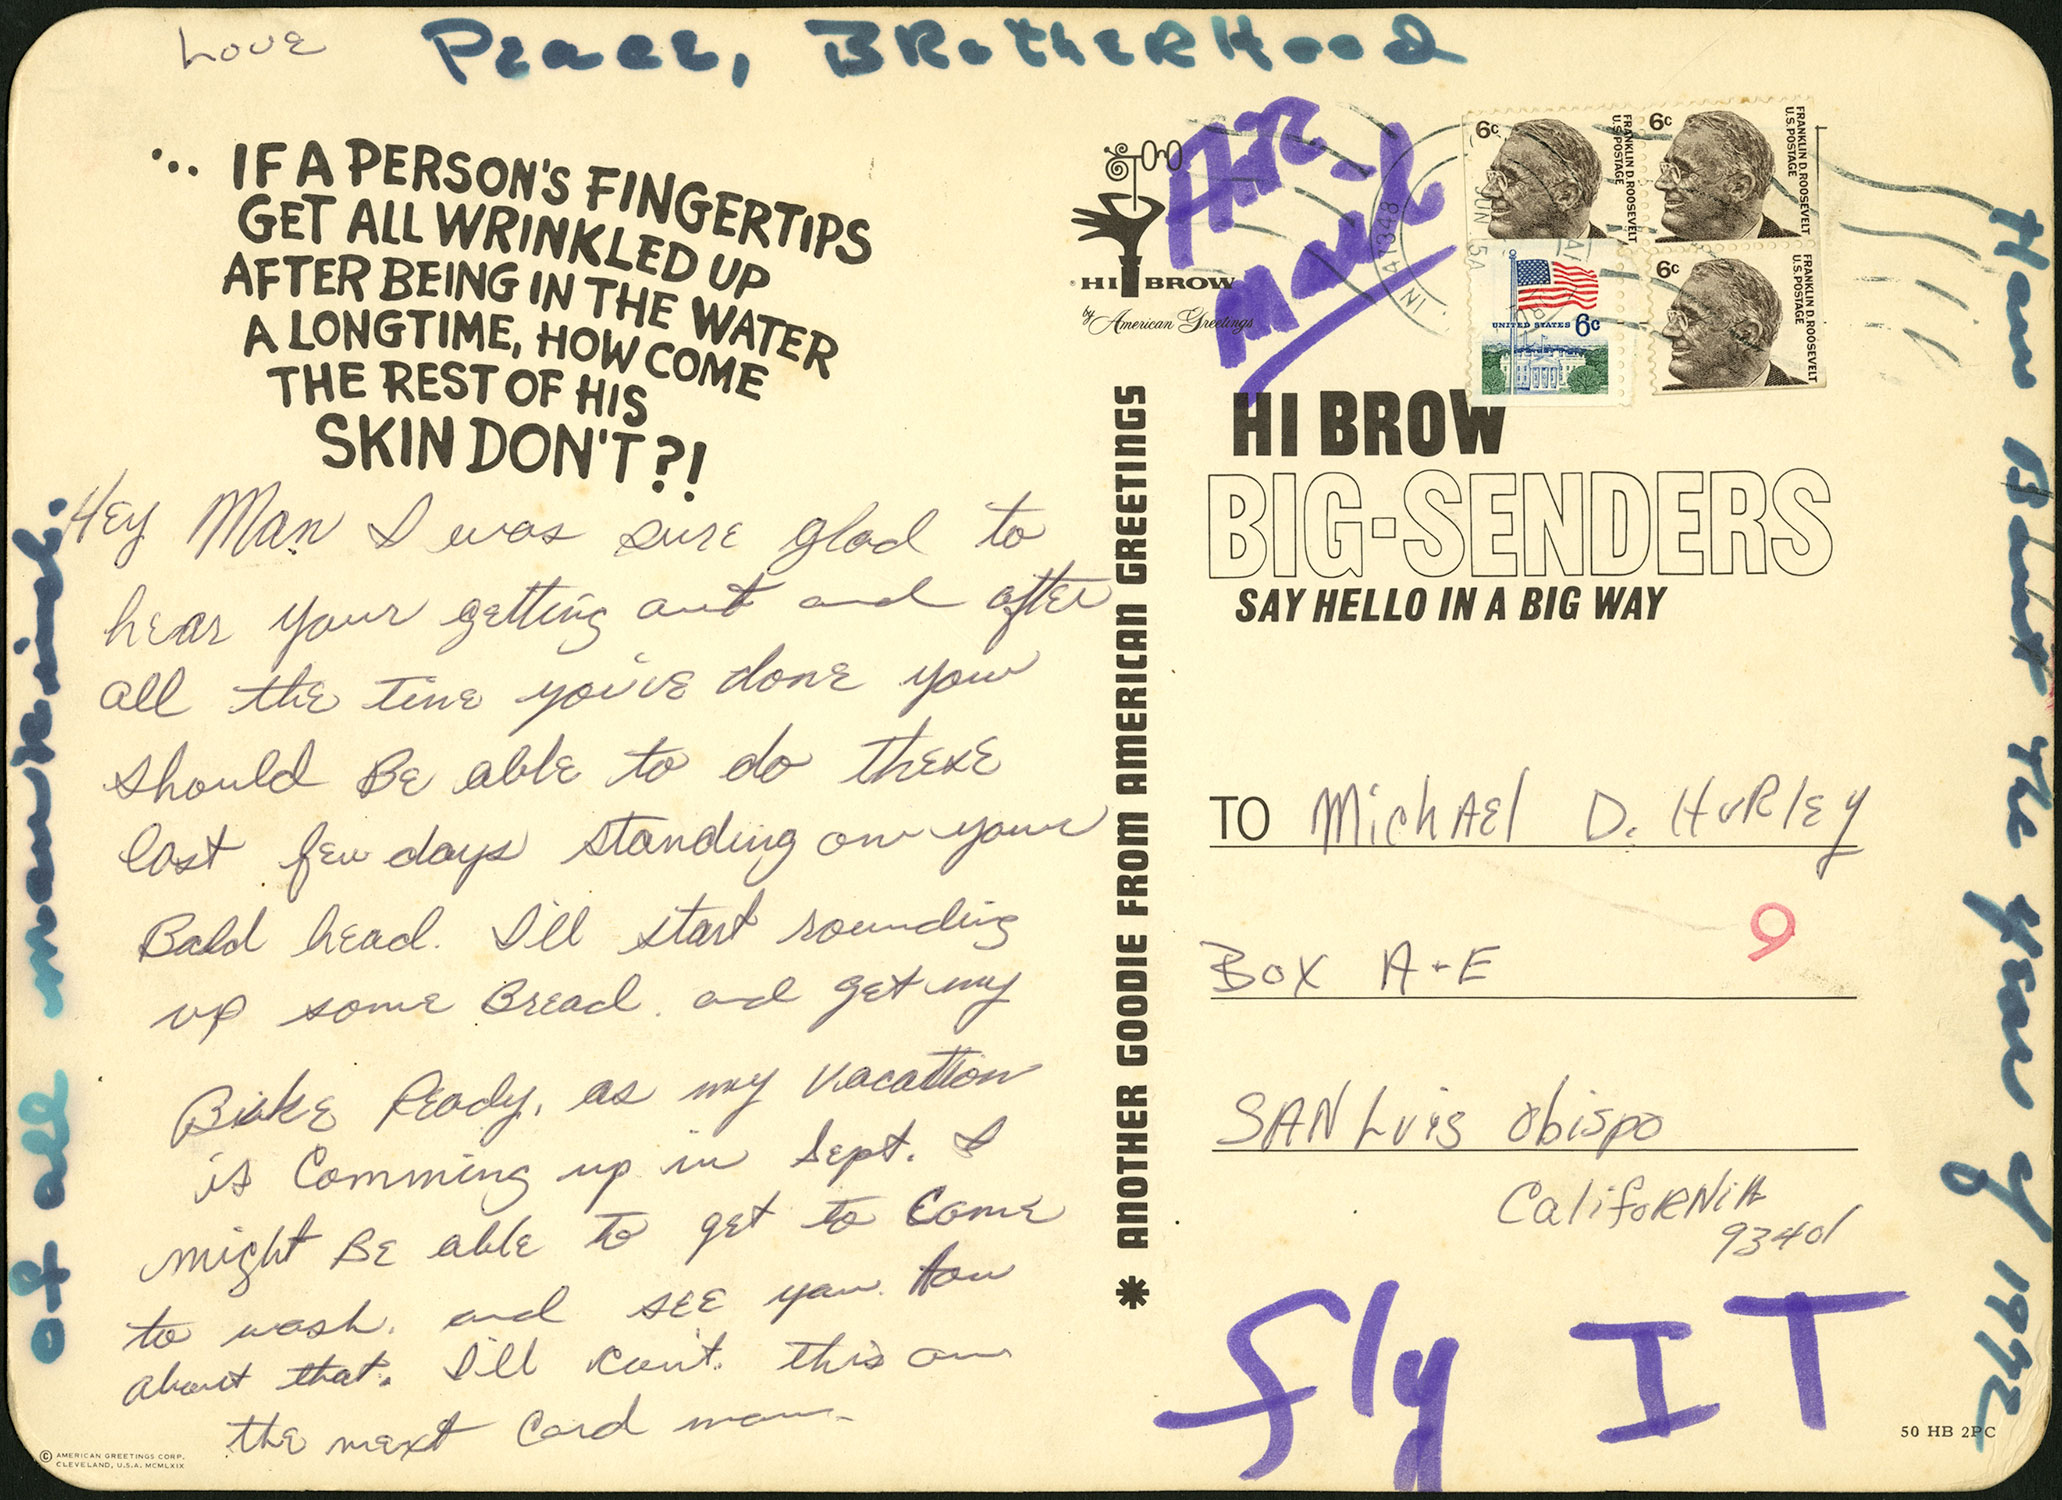 Love Peace, BRotheRHood
of all mankind.
... IF A PERSON'S FINGERTIPS
GET ALL WRINKLED UP
AFTER BEING IN THE WATER
A LONGTIME, HOW COME
THE REST OF HIS
SKIN DON'T?!
Hey Man I was sure glad to
hear your getting out and after
all the time you've done you
should Be able to do these
last few days standing on your
Bald head. I'll start rounding
up some Bread. and get my
Bike Ready, as my vacation
is Comming up in Sept. I
might Be able to get to Come
to wash. and see you. How
about that. I'll con't. this on
the next Card man.
© AMERICAN GREETINGS CORP.
CLEVELAND, U.S.A. MCMLXIX
* ANOTHER GOODIE FROM AMERICAN GREETINGS
HI BROW
by American Greetings
AiR
Mail
JUN
5A
IN
6c
FRANKLIN D. ROOSEVELT
U.S. POSTAGE
6c
FRANKLIN D. ROOSEVELT
U.S. POSTAGE
UNITED STATES 6c
6c
FRANKLIN D. ROOSEVELT
U.S. POSTAGE
HI BROW
BIG-SENDERS
SAY HELLO IN A BIG WAY
TO Michael D. HuRley
9
Box A-E
SAN Luis Obispo
CalifoRNiA
93401
Fly IT
50 HB 2PC
How About the Year of 1992